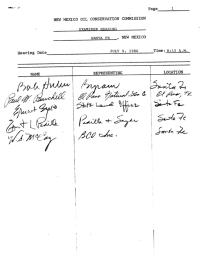 Page 1
NEW MEXICO OIL CONSERVATION COMMISSION
EXAMINER HEARING
SANTA FE, NEW MEXICO
Hearing Date JULY 9, 1986 Time: 8:15 A.M.
NAME REPRESENTING LOCATION
Bob Huber Byram Santa Fe
Paul W. Burchell El Paso Natural Gas Co El Paso, TX
Ernest State Land Office Santa Fe
Padilla & Snyder Santa Fe
BCO Inc. Santa Fe